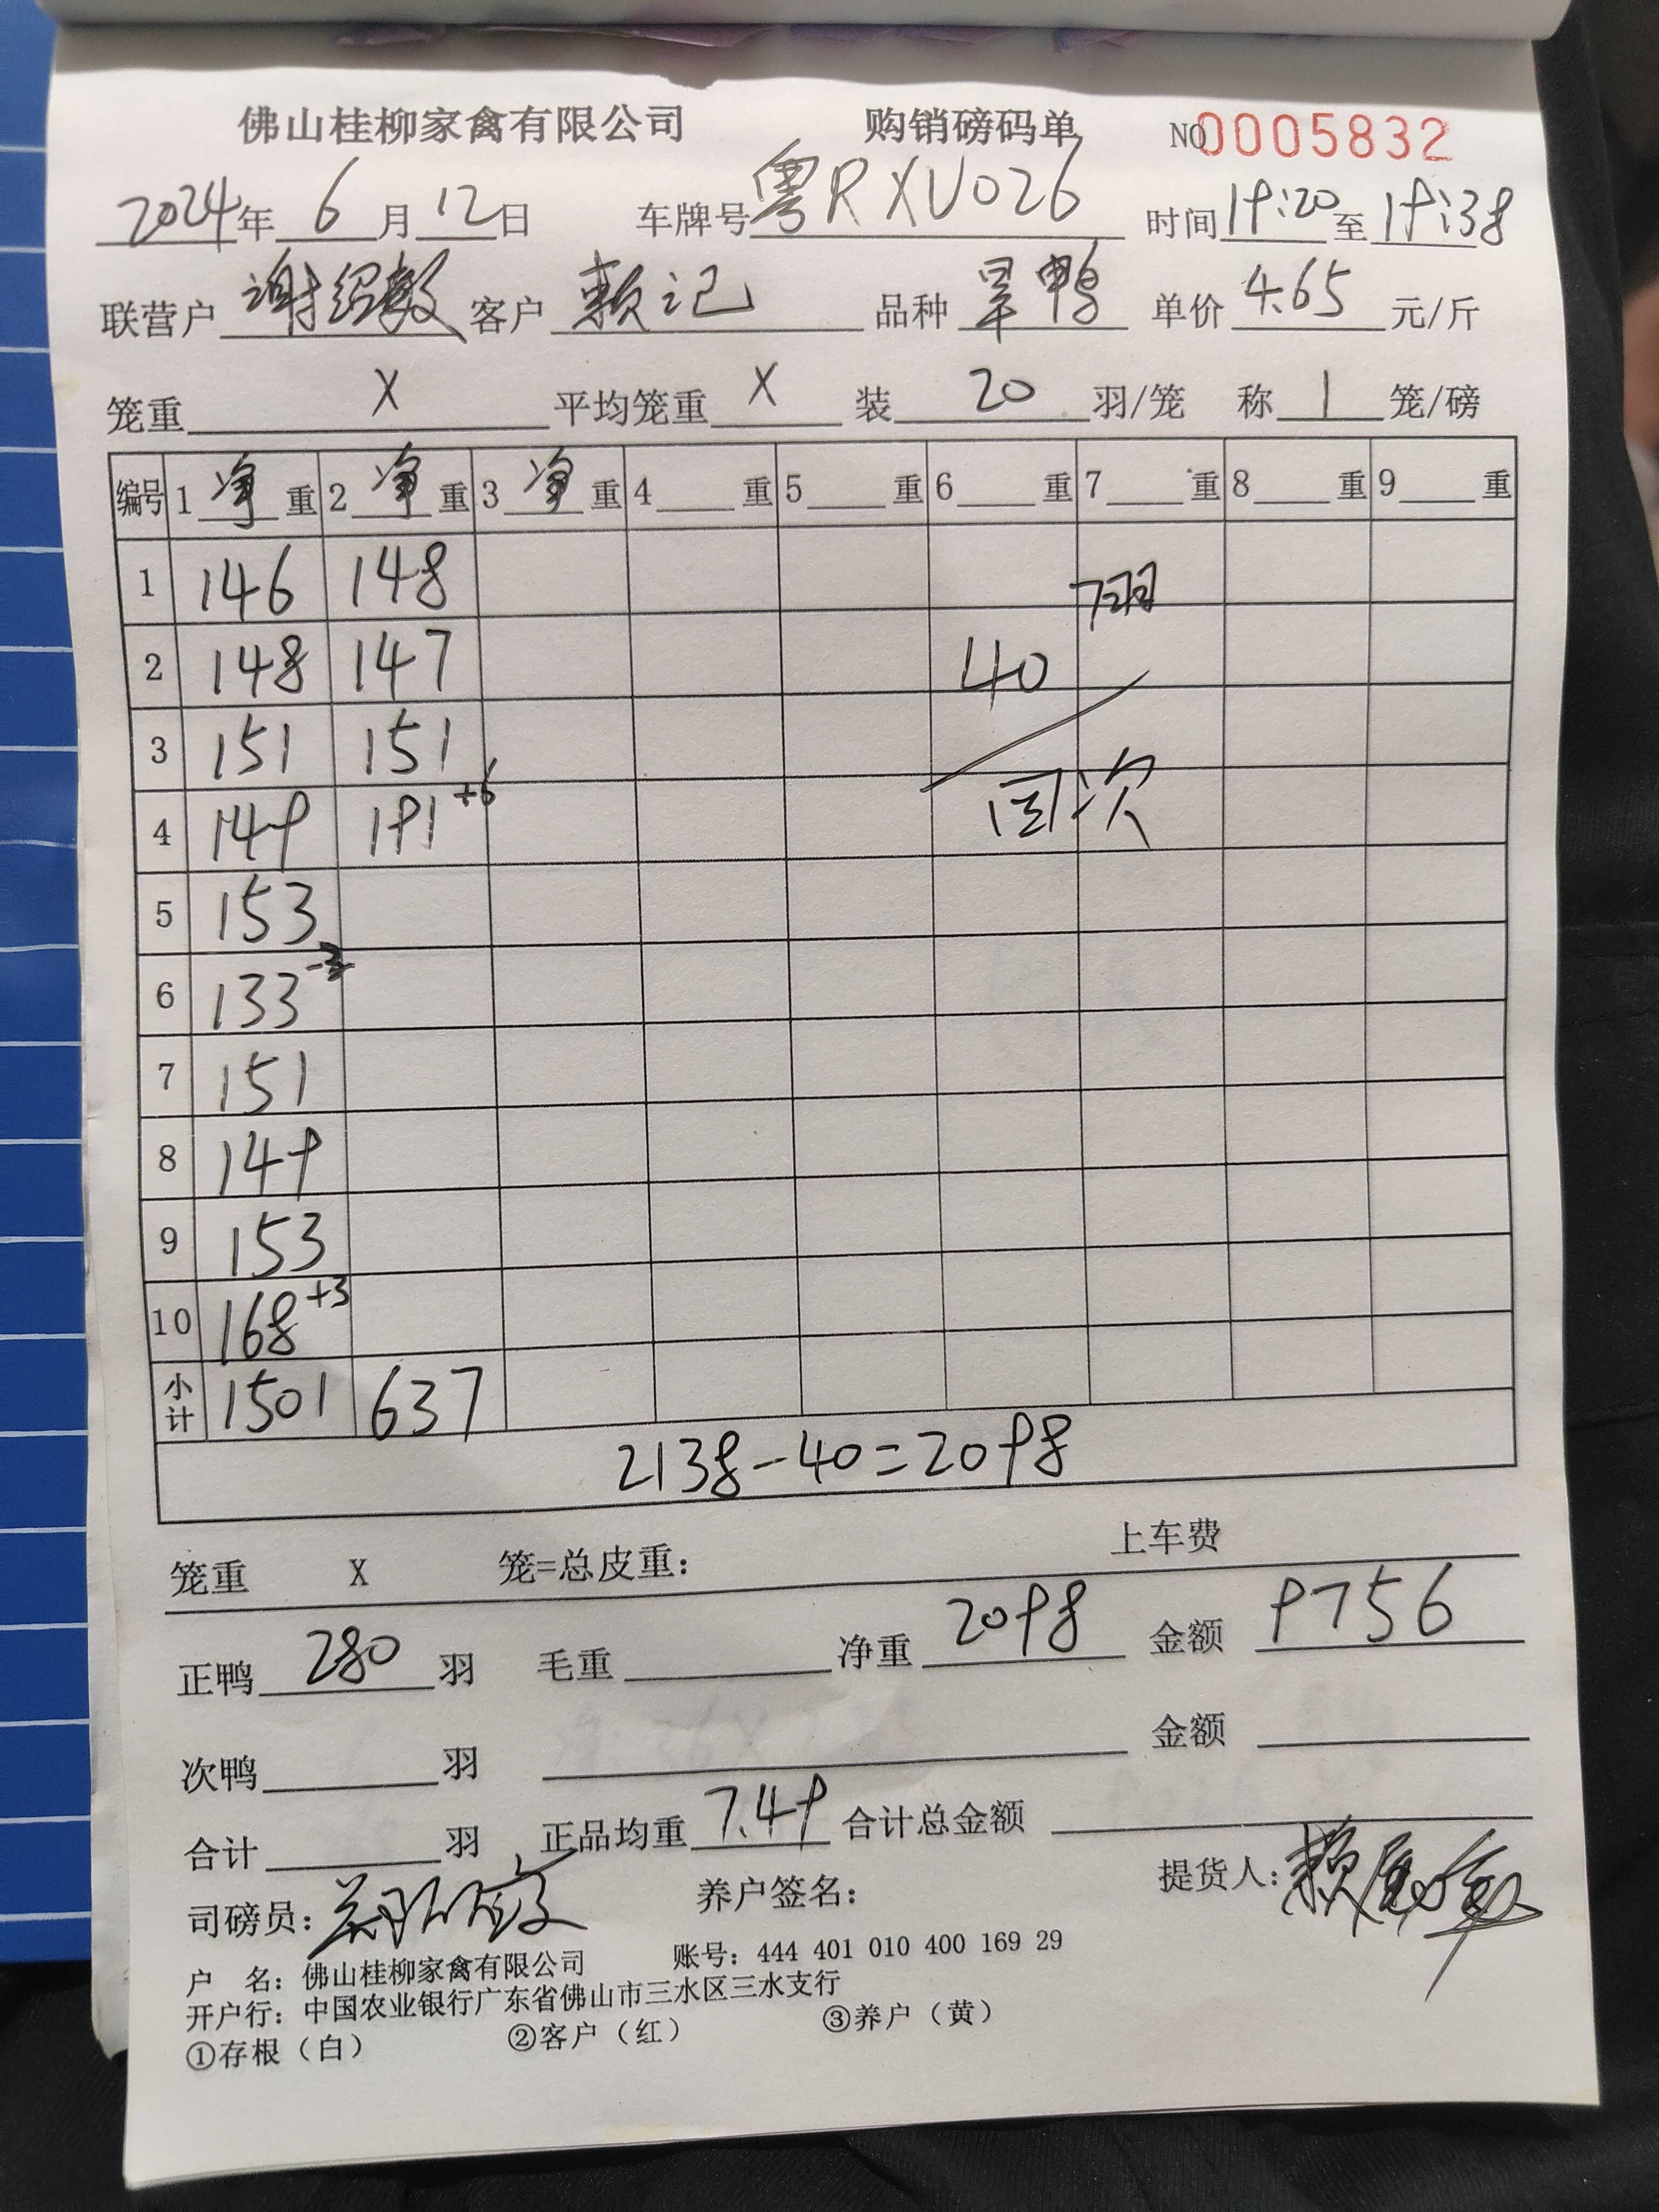 佛山桂柳家禽有限公司 购销磅码单 NO 0005832
2024年 6 月 12 日 车牌号 粤RXU026 时间 19:20 至 19:38
联营户 谢绍毅 客户 赖记 品种 旱鸭 单价 4.65 元/斤
笼重 X 平均笼重 X 装 20 羽/笼 称 1 笼/磅
编号 1 净 重 2 净 重 3 净 重 4 重 5 重 6 重 7 重 8 重 9 重
1 146 148 7羽
2 148 147 40
3 151 151
4 149 191 +6 回次
5 153
6 133
7 151
8 149
9 153
10 168 +3
小计 1501 637
2138-40=2098
笼重 X 笼=总皮重： 上车费
正鸭 280 羽 毛重 净重 2098 金额 9756
次鸭 羽 金额
合计 羽 正品均重 7.49 合计总金额
司磅员： 养户签名： 提货人：
户 名：佛山桂柳家禽有限公司 账号：444 401 010 400 169 29
开户行：中国农业银行广东省佛山市三水区三水支行
①存根（白） ②客户（红） ③养户（黄）